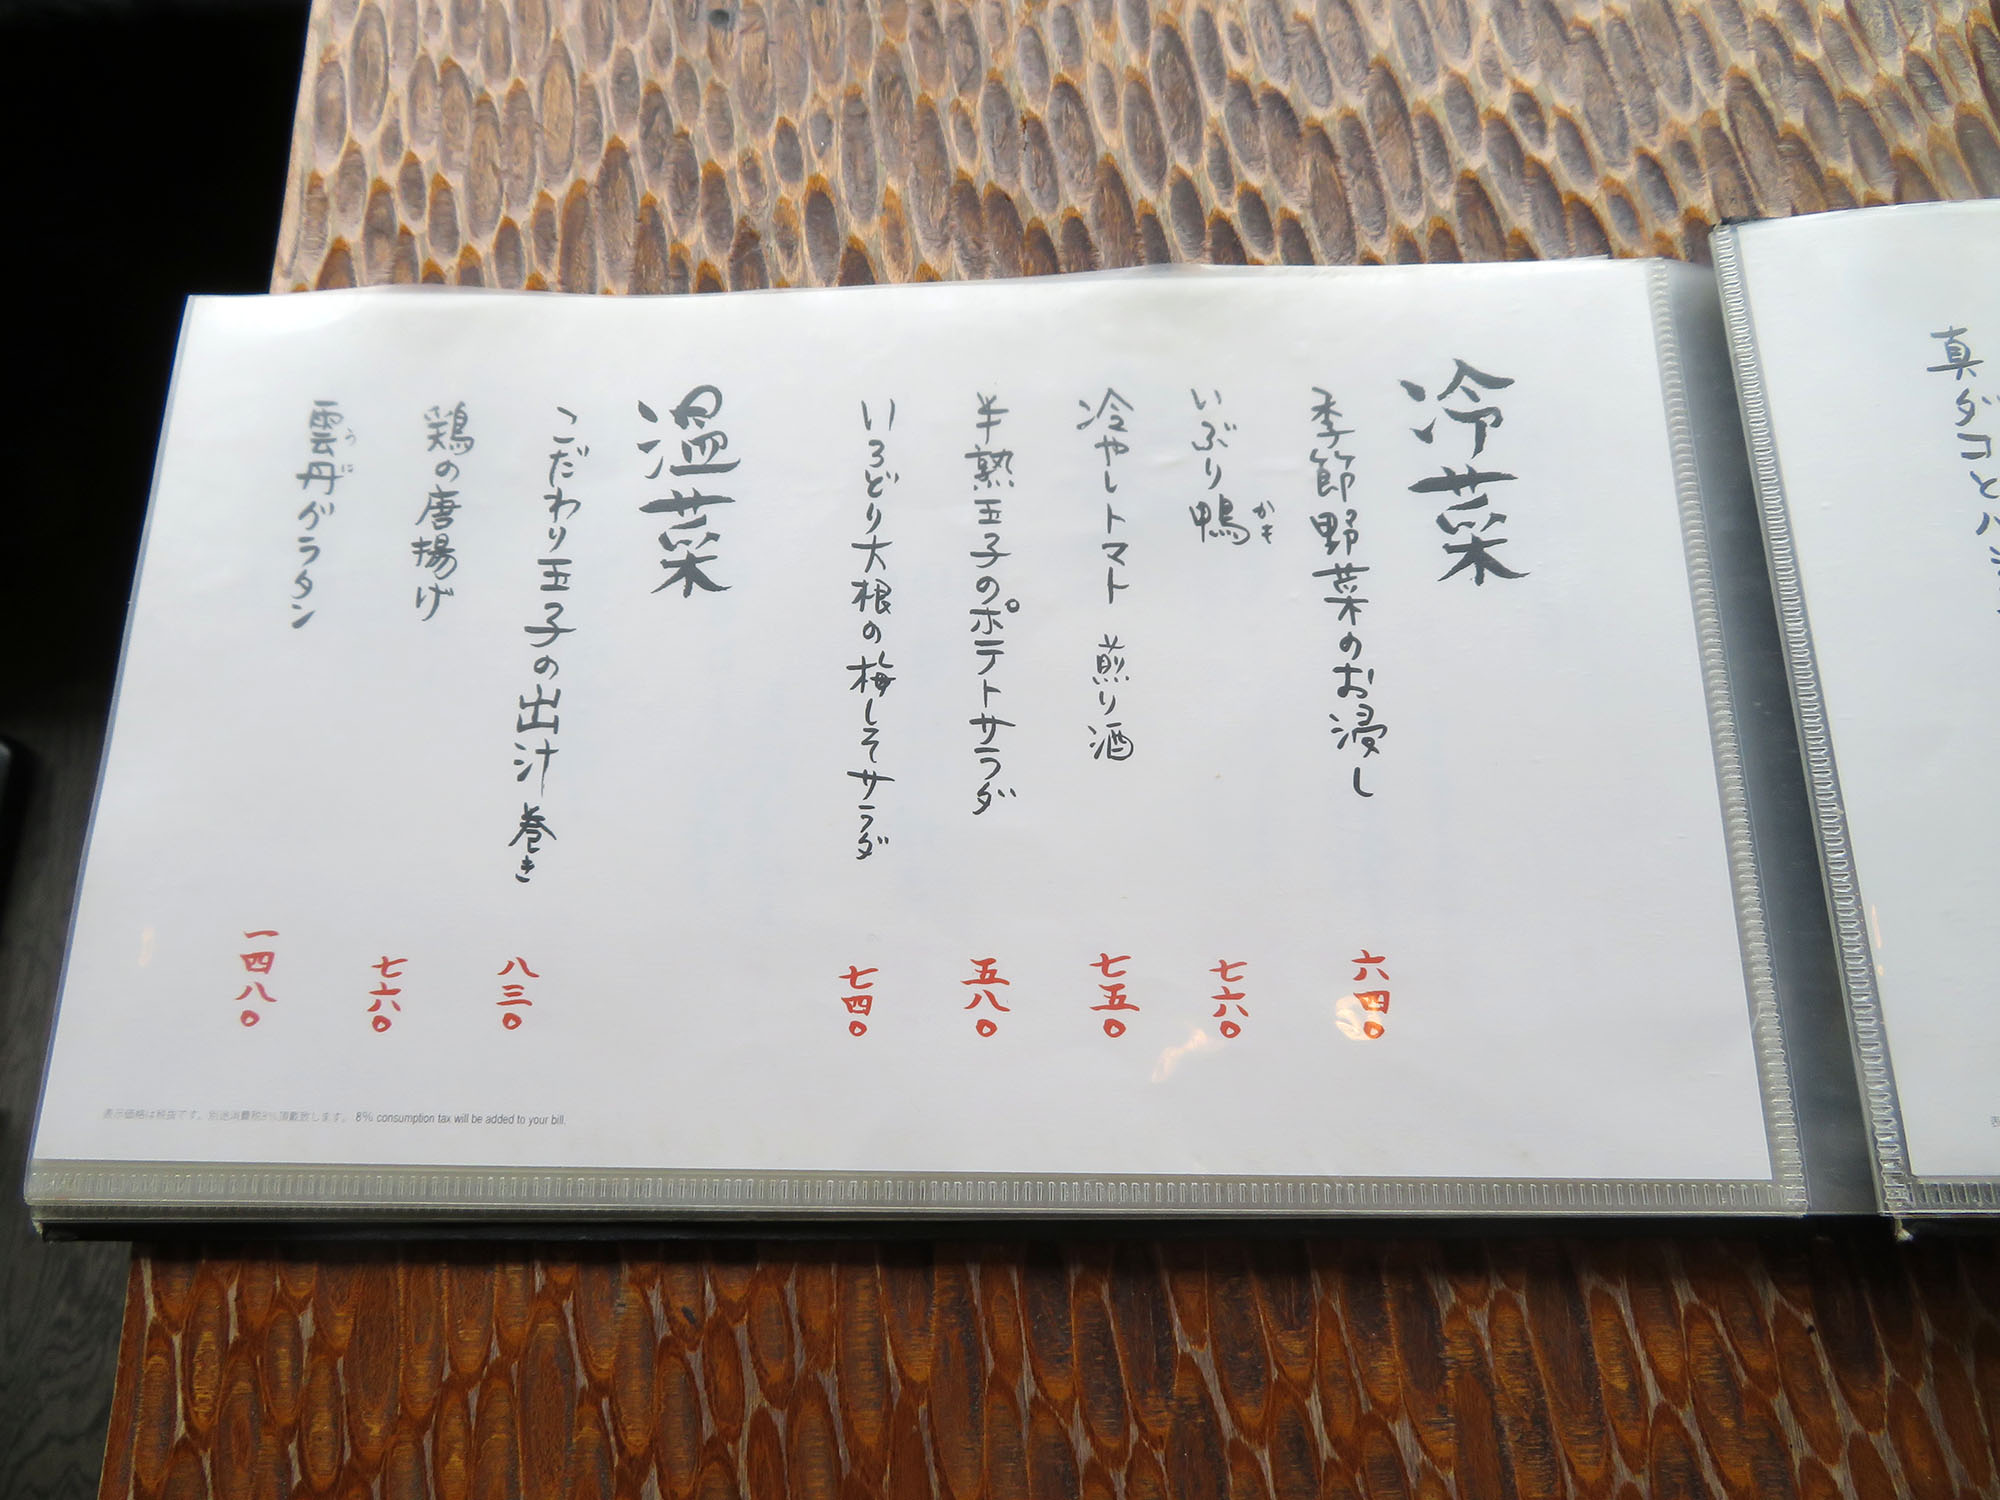 真ダコと
冷菜
季節野菜のお浸し 六四〇
いぶり鴨 かも 七六〇
冷やしトマト 煎り酒 七五〇
半熟玉子のポテトサラダ 五八〇
いろどり大根の梅しそサラダ 七四〇
温菜
こだわり玉子の出汁巻き 八三〇
鶏の唐揚げ 七六〇
雲丹グラタン うに 一四八〇
表示価格は税抜です。別途消費税8%頂戴致します。 8% consumption tax will be added to your bill.